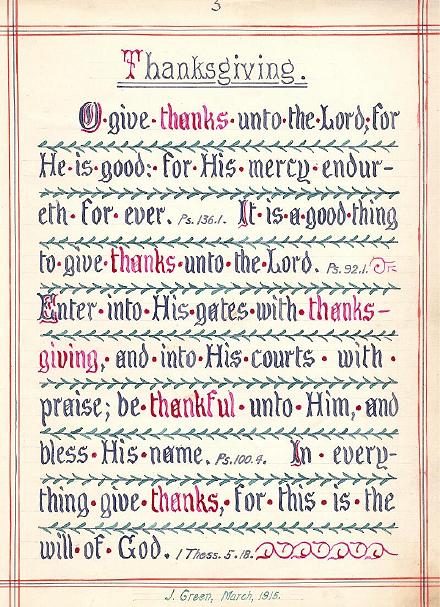 3
Thanksgiving.
O·give·thanks·unto·the·Lord; for
He·is·good: for·His·mercy·endur-
eth·for·ever. Ps. 136.1. It·is·a·good·thing
to·give·thanks·unto·the·Lord. Ps. 92.1.
Enter·into·His·gates·with·thanks-
giving, and·into·His·courts·with·
praise; be·thankful·unto·Him, and
bless·His·name. Ps. 100.4. In·every-
thing·give·thanks, for·this·is·the
will·of·God. 1 Thess. 5.18.
J. Green, March, 1915.